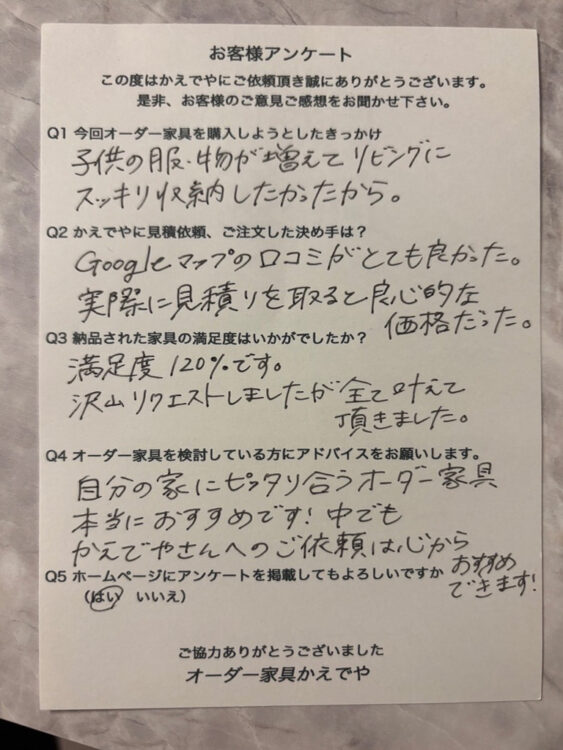 お客様アンケート
この度はかえでやにご依頼頂き誠にありがとうございます。
是非、お客様のご意見ご感想をお聞かせ下さい。
Q1 今回オーダー家具を購入しようとしたきっかけ
子供の服・物が増えてリビングに
スッキリ収納したかったから。
Q2 かえでやに見積依頼、ご注文した決め手は?
Googleマップの口コミがとても良かった。
実際に見積りを取ると良心的な
価格だった。
Q3 納品された家具の満足度はいかがでしたか?
満足度120%です。
沢山リクエストしましたが全て叶えて
頂きました。
Q4 オーダー家具を検討している方にアドバイスをお願いします。
自分の家にピッタリ合うオーダー家具
本当におすすめです!中でも
かえでやさんへのご依頼は心から
おすすめ
できます!
Q5 ホームページにアンケートを掲載してもよろしいですか
(はい いいえ)
ご協力ありがとうございました
オーダー家具かえでや